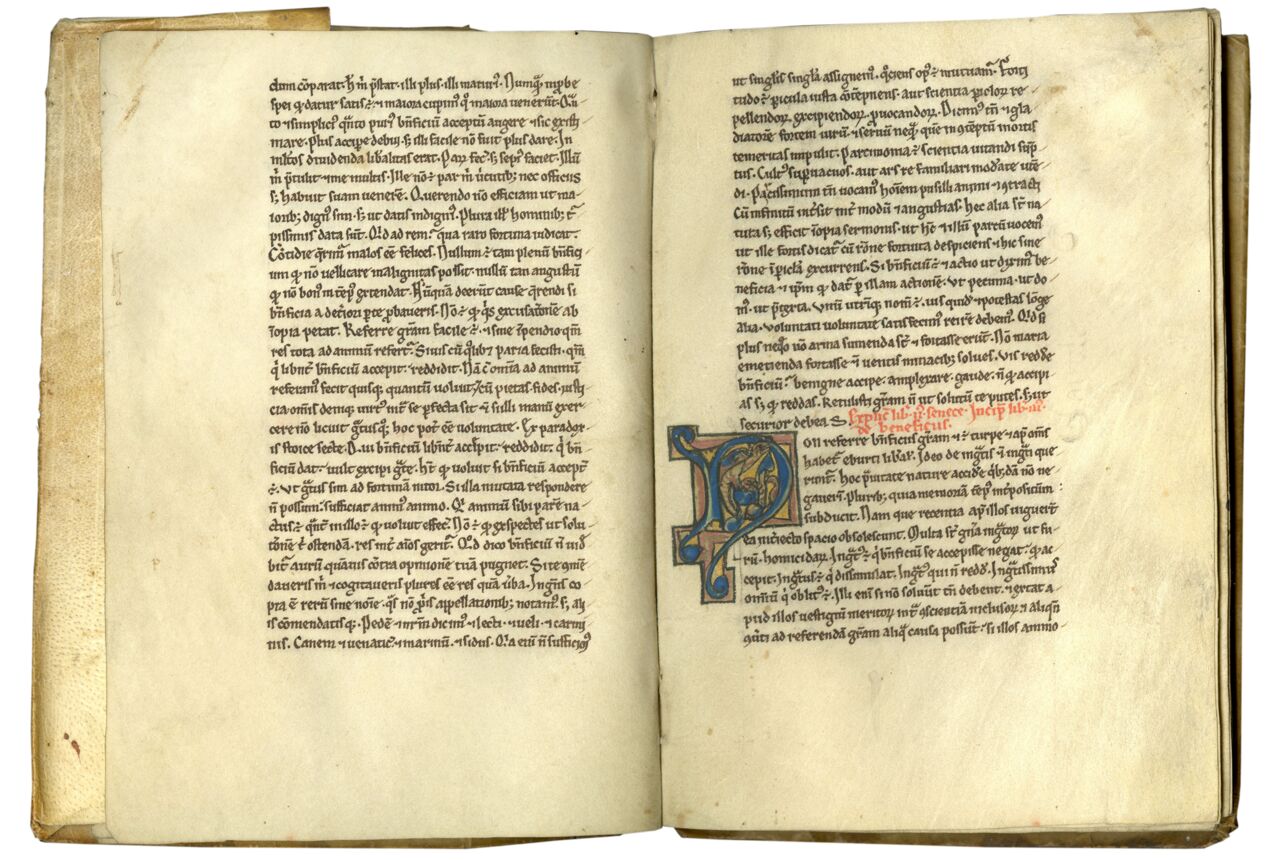 dum cōparat h̄ m̄ p̄stat. illi plus. illi maturi᷒. Nunq̄ inprobe
spei q̄ datur satis ē. ⁊ maiora cupim᷒ q̄ maiora uener̄t. Qu
to ē simplici᷒ q̄nto puri᷒ bn̄ficiū acceptū augere ⁊ sic existi
mare. Plus accipe debui. s; illi facile nō fuit plus dare. In
ml̄tos diuidenda lib̄alitas erat. Parū fec̄. s; sepi᷒ faciet. Illū
m̄ p̄tulit ⁊ me multis. Ille nō ē par m̄ uirtutib; nec officiis
s; habuit suam uenerē. Querendo nō efficiam ut ma
iorib; dign᷒ sim. s; ut datis indign᷒. Plura ill᷒ hominib; t᷒
pissimis data sūt. Qd̄ ad rem. qua raro fortuna iudicat.
Cōtidie q̄rim᷒ malos eē felices. Nullum ē tam plenū bn̄fici
um q̄ nō uellicare malignitas possit. nullū tam angustū
q̄ nō bon᷒ int̄ep᷒ extendat. Nūquā deerūt cause q̄rendi si
bn̄ficia a det̄iori parte p̄baueris. Nō ē q̄ q̄s excusatōnē ab
īopia petat. Referre gr̄am facile ē. ⁊ sine īpendio q̄m̄
res tota ad animū refert᷒. Si uis cū q̄lib; paria fecisti. q̄m̄
q̄ libent᷒ bn̄ficiū accepit. reddidit. Nā c̄ om̄ia ad animū
referam᷒ fecit quisq; quantū uoluit. ⁊ cū pietas. fides. iusti
cia. om̄is deniq; uirt᷒ int᷒ se p̄fecta sit ⁊ si illi manū exer
cere nō licuit ḡtusq; hoc pot̄ eē uoluntate. Ex paradox
is stoice secte. Qui bn̄ficiū libent᷒ accepit. reddidit. q̄ bn̄
ficiū dat. uult excipi ḡte. h̄t q̄ uoluit si bn̄ficiū accept᷒
ē. Ut ḡtus sim ad fortunā nitor. Si illa mutata respondere
n̄ possum. sufficiat anim᷒ animo. Q̄ animū sibi parē na
ctus ē q̄nt᷒ in illo ē q̄ uoluit effec̄. Nō ē q̄ expectes ut solu
tōnē t̄ ostendā. res int᷒ aīos gerit᷒. Qd̄ dico bn̄ficiū n̄ uid
bit᷒ aurū quāuis cōtra opinionē tuā pugnet. Si te q̄m̄e
daueris m̄ ⁊ cogitaueris plures eē res quā ūba. Ingn̄s co
pia ē rerū sine noīe. qs nō p̄p̄iis appellationib; notam᷒. s; ali
is cōmendatisq;. Pedē ⁊ nr̄m dicim᷒. ⁊ lecti. ⁊ ueli. ⁊ carmi
nis. Canem ⁊ uenaticū. ⁊ marinū. ⁊ sidus. Q̄a enī n̄ sufficim᷒
ut singlis singla assignem᷒. q̄ciens op᷒ ē mutuam᷒. Forti
tudo ē picula iusta cōtempnens. aut scientia piclor re
pellendor. excipiendor. puocandor. Dicim᷒ tn̄ ⁊ gla
diatorē fortem uirū. ⁊ seruū neq̄. que in ꝯtēptū mortis
temeritas impulit. Parcimonia ē scientia uitandi sūp
tus. Cult᷒ supuacuos. aut ars re familiari mod̄ate uten
di. Parcissimum tn̄ uocam᷒ hoīem pusilli animi ⁊ ꝯtracti
Cū infinitū int̄sit int᷒ modū ⁊ angustias. Hec alia sr̄ na
tura s; efficit īopia sermonis. ut h̄c ⁊ illū parcū uocem᷒
ut ille fortis dicat᷒ cū rōne fortuita despiciens. ⁊ hic sine
rōne ī picla excurrens. Si bn̄ficiū ē ⁊ actio ut dixim᷒ be
neficia. ⁊ ip̄m q̄ dat᷒ p illam actionē. Ut pecunia. ut do
m᷒. ut p̄texta. Unū utriq; nom̄ ē. uis quid̄ ⁊ potestas lōge
alia. Voluntati uoluntate satisfecim᷒ rei rē debem᷒. Qd̄ si
plus neq̄o nō arma sumenda sr̄. ⁊ fortasse erūt. Nō maria
emetienda fortasse ⁊ uentis minacib; solues. Vis redd̄e
bn̄ficiū. benigne accipe. amplexare. gaude. n̄ q̄ accipi
as s; q̄ reddas. Retulisti gr̄am n̄ ut solutū te putes. s; ut
securior debeas. Explic̄ lib᷒. ii᷒. senece. Incip̄ lib᷒. iii᷒.
de beneficiis.
Non referre bn̄ficiis gram ⁊ ē turpe ⁊ ap̄ om̄s
habet᷒ eburti lib̄al. Ideo de ingr̄tis ⁊ ingr̄ti que
runt᷒. hoc p̄uitate nature accid̄e qb; dā nō ne
gauerī. plurib; quia memoriā tēp᷒ int̄positum
subducit. Nam que recentia ap̄ illos uiguer̄t
ea int̄iecto spacio obsolescunt. Multa sr̄ gn̄a ingr̄tor ut fu
rū. homicidar. Ingr̄t᷒ ē q̄ bn̄ficiū se accepisse negat. q̄ ac
cepit. Ingr̄tus ē q̄ dissimulat. Ingr̄t᷒ qui n̄ redd̄. Ingr̄tissim᷒
om̄iū q̄ oblit᷒ ē. Illi enī si nō soluūt tn̄ debent. ⁊ extat a
pud illos uestigiū meritor int᷒ ꝯscientiā inclusor ⁊ aliqn̄
ꝯūti ad referendā gr̄am aliq̄ causa possūt. si illos ammo